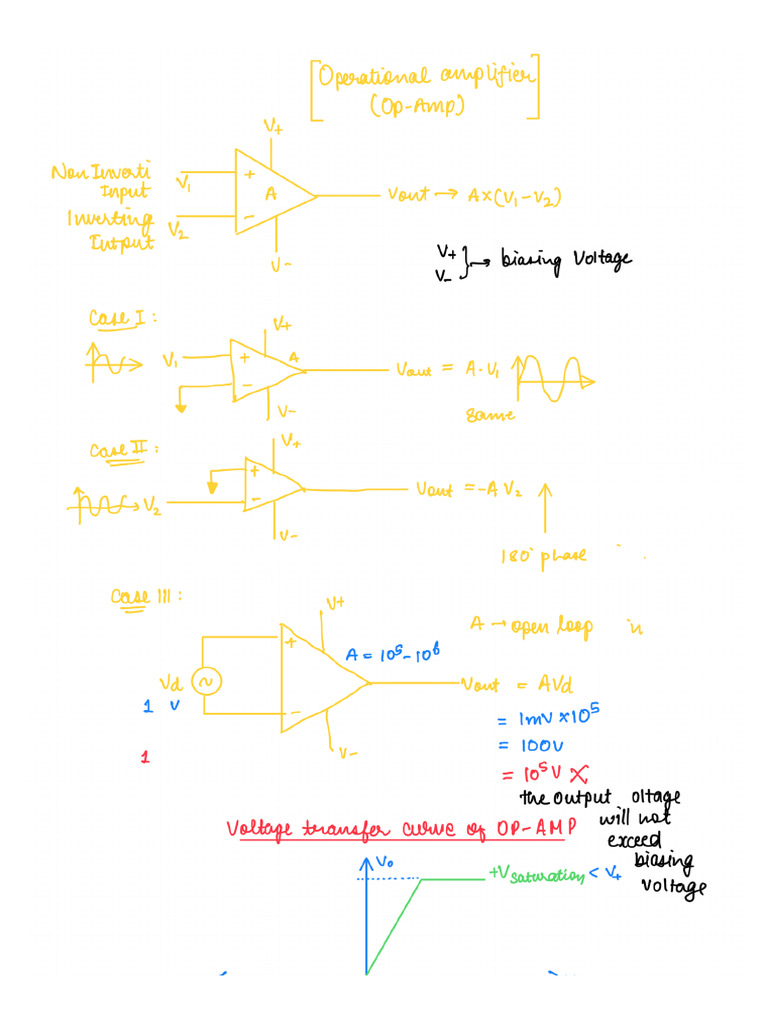 [Operational amplifier]
(Op-Amp)
V+
Non Inverti
Input
V1
+
A
Vout → A×(V1-V2)
Inverting
Intput
V2
-
V-
V+
V-
}→ biasing Voltage
Case I:
V+
V1
+
A
-
Vout = A·V1
V-
same
Case II:
V+
+
V2
-
Vout = -A V2
V-
180° phase
Case III:
V+
A → open loop in
+
A = 10^5 - 10^6
Vd
~
Vout = AVd
1 v
-
= 1mV×10^5
V-
= 100v
1
= 10^5 V X
the output oltage
will not
exceed
biasing
voltage
Voltage transfer curve of OP-AMP
Vo
+Vsaturation < V+